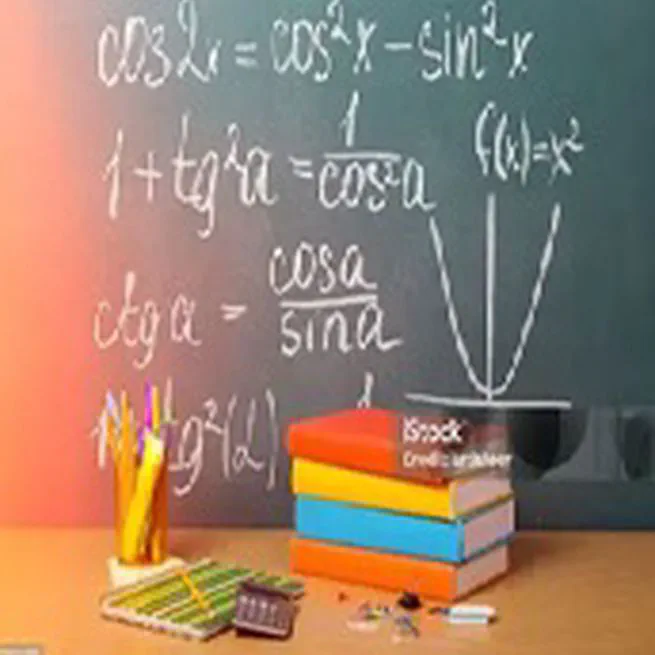 cos2x = cos²x − sin²x
1 + tg²a = 1/cos²a
f(x)=x²
ctg a = cosa/sina
tg²(2) 1
iStock
Credit: